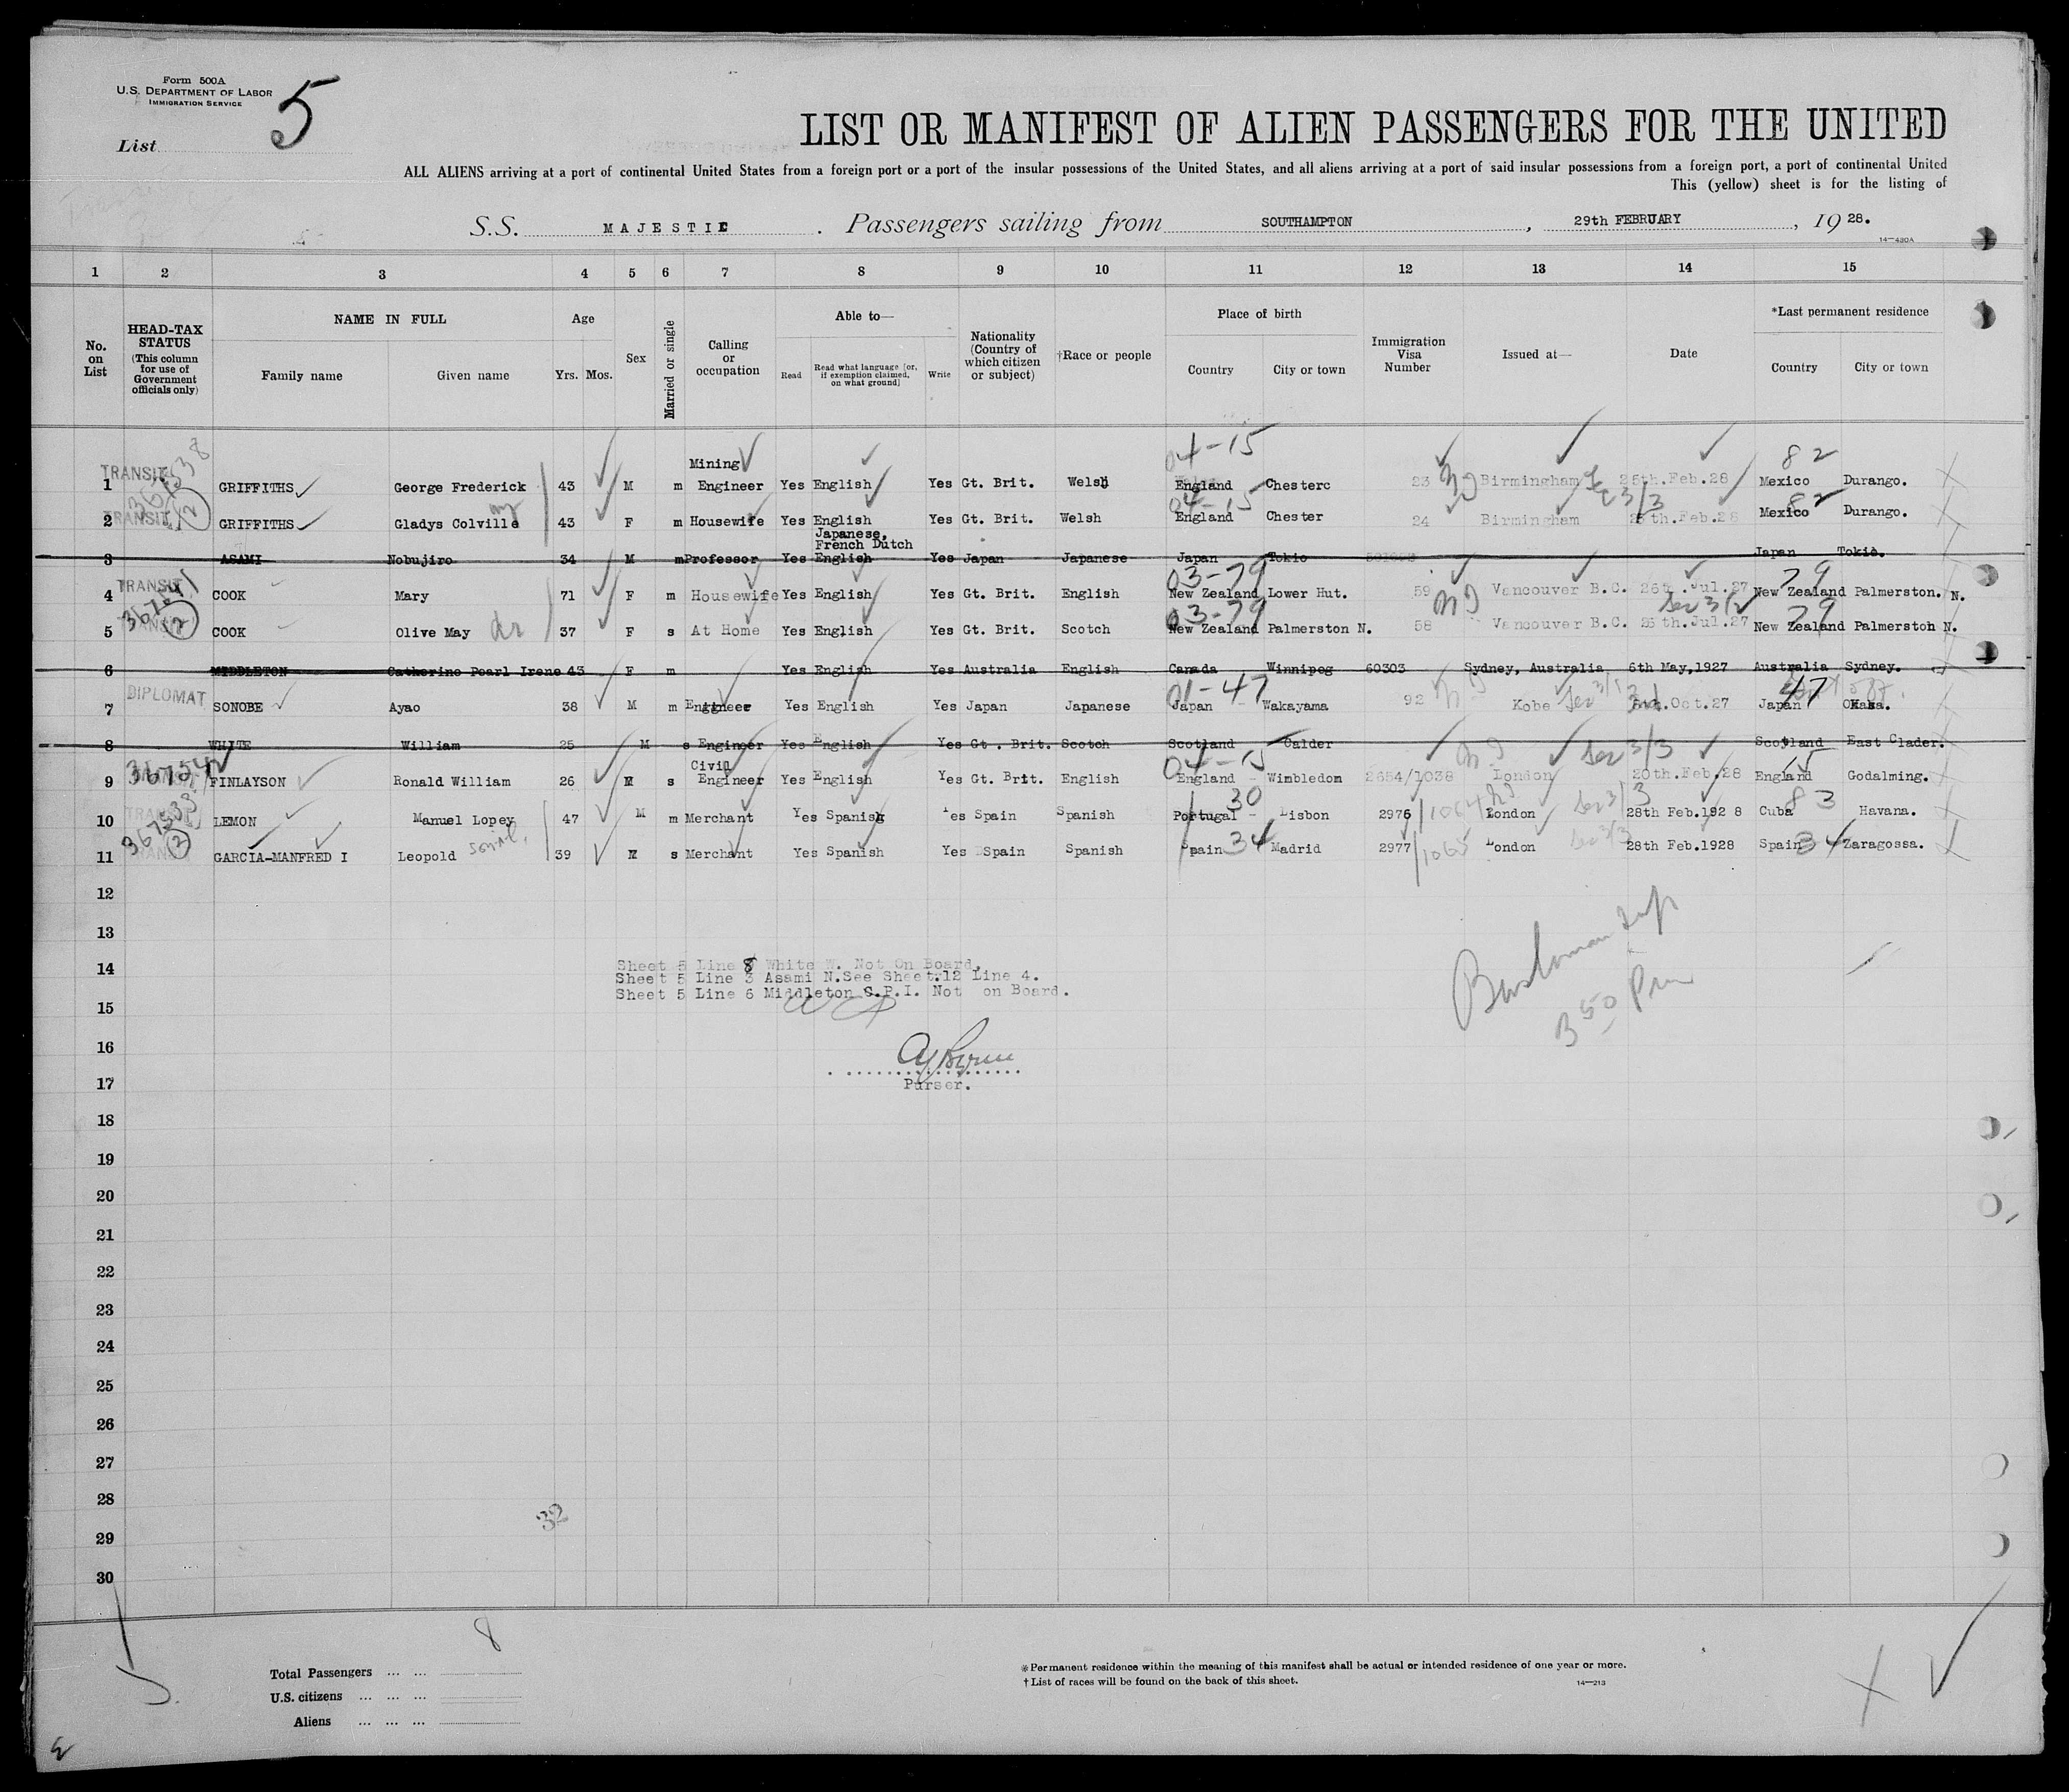 Form 500A
U.S. DEPARTMENT OF LABOR
IMMIGRATION SERVICE
List 5
LIST OR MANIFEST OF ALIEN PASSENGERS FOR THE UNITED
ALL ALIENS arriving at a port of continental United States from a foreign port or a port of the insular possessions of the United States, and all aliens arriving at a port of said insular possessions from a foreign port, a port of continental United
This (yellow) sheet is for the listing of
S.S. MAJESTIC . Passengers sailing from SOUTHAMPTON , 29th FEBRUARY , 19 28.
14—430A
1 2 3 4 5 6 7 8 9 10 11 12 13 14 15
No. on List
HEAD-TAX STATUS (This column for use of Government officials only)
NAME IN FULL
Family name Given name
Age
Yrs. Mos.
Sex
Married or single
Calling or occupation
Able to—
Read Read what language [or, if exemption claimed, on what ground] Write
Nationality (Country of which citizen or subject)
†Race or people
Place of birth
Country City or town
Immigration Visa Number
Issued at—
Date
*Last permanent residence
Country City or town
04-15 82
Mining
TRANSIT
1 GRIFFITHS George Frederick 43 M m Engineer Yes English Yes Gt. Brit. Welsh England Chesterc 23 Birmingham 25th.Feb.28 Mexico Durango.
04-15 3/3 82
TRANSIT
2 GRIFFITHS Gladys Colville 43 F m Housewife Yes English Yes Gt. Brit. Welsh England Chester 24 Birmingham 25th.Feb.28 Mexico Durango.
Japanese,
French Dutch
3 ASAMI Nobujiro 34 M m Professor Yes English Yes Japan Japanese Japan Tokio Japan Tokio.
03-79 79
TRANSIT
4 COOK Mary 71 F m Housewife Yes English Yes Gt. Brit. English New Zealand Lower Hut. 59 Vancouver B.C. 26th.Jul.27 New Zealand Palmerston. N.
03-79 79
5 COOK Olive May 37 F s At Home Yes English Yes Gt. Brit. Scotch New Zealand Palmerston N. 58 Vancouver B.C. 26th.Jul.27 New Zealand Palmerston N.
6 MIDDLETON Catherine Pearl Irene 43 F m Yes English Yes Australia English Canada Winnipeg 60303 Sydney, Australia 6th May,1927 Australia Sydney.
01-47 47
DIPLOMAT
7 SONOBE Ayao 38 M m Engineer Yes English Yes Japan Japanese Japan Wakayama 92 Kobe Oct.27 Japan Osaka.
8 WHITE William 25 M s Engineer Yes English Yes Gt. Brit. Scotch Scotland Calder Scotland East Clader.
04-15 3/3 15
Civil
9 FINLAYSON Ronald William 26 M s Engineer Yes English Yes Gt. Brit. English England Wimbledom 2654/1038 London 20th.Feb.28 England Godalming.
30 83
10 LEMON Manuel Lopey 47 M m Merchant Yes Spanish Yes Spain Spanish Portugal Lisbon 2976 /1064 London 28th Feb.192 8 Cuba Havana.
11 GARCIA-MANFRED I Leopold 39 M s Merchant Yes Spanish Yes Spain Spanish Spain 34 Madrid 2977 /1065 London 28th Feb.1928 Spain 34 Zaragossa.
12
13
14
15
16
17
18
19
20
21
22
23
24
25
26
27
28
29
30
Sheet 5 Line 8 White W. Not On Board.
Sheet 5 Line 3 Asami N.See Sheet.12 Line 4.
Sheet 5 Line 6 Middleton C.P.I. Not on Board.
Purser.
3 50 Pm
32
8
Total Passengers ... ...
U.S. citizens ... ... ...
Aliens ... ... ...
*Permanent residence within the meaning of this manifest shall be actual or intended residence of one year or more.
†List of races will be found on the back of this sheet.
14—213